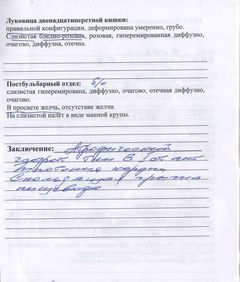 Луковица двенадцатиперстной кишки:
правильной конфигурации, деформирована умеренно, грубо.
Слизистая бледно-розовая, розовая, гиперемированная диффузно,
очагово, диффузна, отечна.
Постбульбарный отдел: б/о
слизистая гиперемирована, диффузно, очагово, отечная диффузно,
очагово.
В просвете желчь, отсутствие желчи.
На слизистой налет в виде манной крупы.
Заключение: Атрофический
гастрит Тип В
кардии
Скользящая грыжа
пищевода